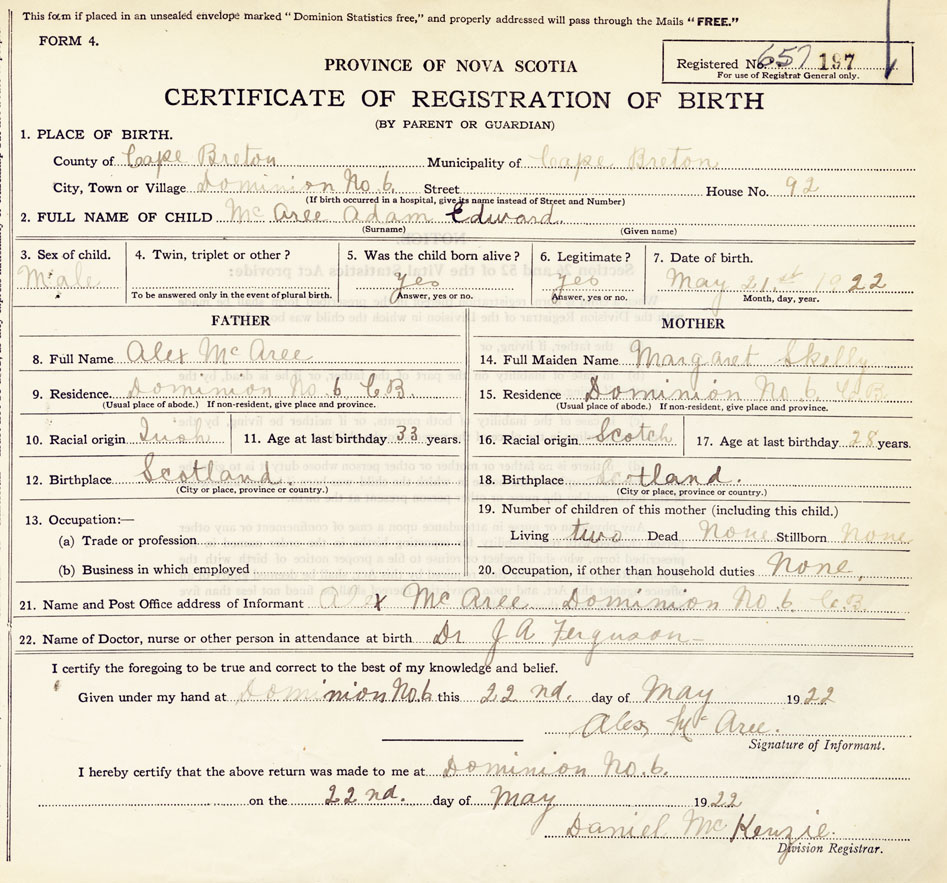 This form if placed in an unsealed envelope marked "Dominion Statistics free," and properly addressed will pass through the Mails "FREE."
FORM 4.
Registered No. 657 197
For use of Registrar General only.
PROVINCE OF NOVA SCOTIA
CERTIFICATE OF REGISTRATION OF BIRTH
(BY PARENT OR GUARDIAN)
1. PLACE OF BIRTH.
County of Cape Breton Municipality of Cape Breton
City, Town or Village Dominion No. 6. Street House No. 92
(If birth occurred in a hospital, give its name instead of Street and Number)
2. FULL NAME OF CHILD McAree Adam Edward.
(Surname) (Given name)
3. Sex of child. 4. Twin, triplet or other? 5. Was the child born alive? 6. Legitimate? 7. Date of birth.
Male. yes yes May 21.st 1922
To be answered only in the event of plural birth. Answer, yes or no. Answer, yes or no. Month, day, year.
FATHER MOTHER
8. Full Name Alex McAree 14. Full Maiden Name Margaret Skelly
9. Residence. Dominion No. 6 C.B. 15. Residence Dominion No. 6. C.B
(Usual place of abode.) If non-resident, give place and province. (Usual place of abode.) If non-resident, give place and province.
10. Racial origin Irish 11. Age at last birthday 33 years. 16. Racial origin Scotch 17. Age at last birthday 28 years.
12. Birthplace Scotland. 18. Birthplace Scotland.
(City or place, province or country.) (City or place, province or country.)
13. Occupation:— 19. Number of children of this mother (including this child.)
(a) Trade or profession Living two Dead None Stillborn None
(b) Business in which employed 20. Occupation, if other than household duties None.
21. Name and Post Office address of Informant Alex McAree Dominion No 6 C.B
22. Name of Doctor, nurse or other person in attendance at birth Dr J A Ferguson—
I certify the foregoing to be true and correct to the best of my knowledge and belief.
Given under my hand at Dominion No. 6 this 22 nd. day of May 1922
Alex McAree.
Signature of Informant.
I hereby certify that the above return was made to me at Dominion No. 6.
on the 22 nd. day of May 1922
Daniel McKenzie.
Division Registrar.